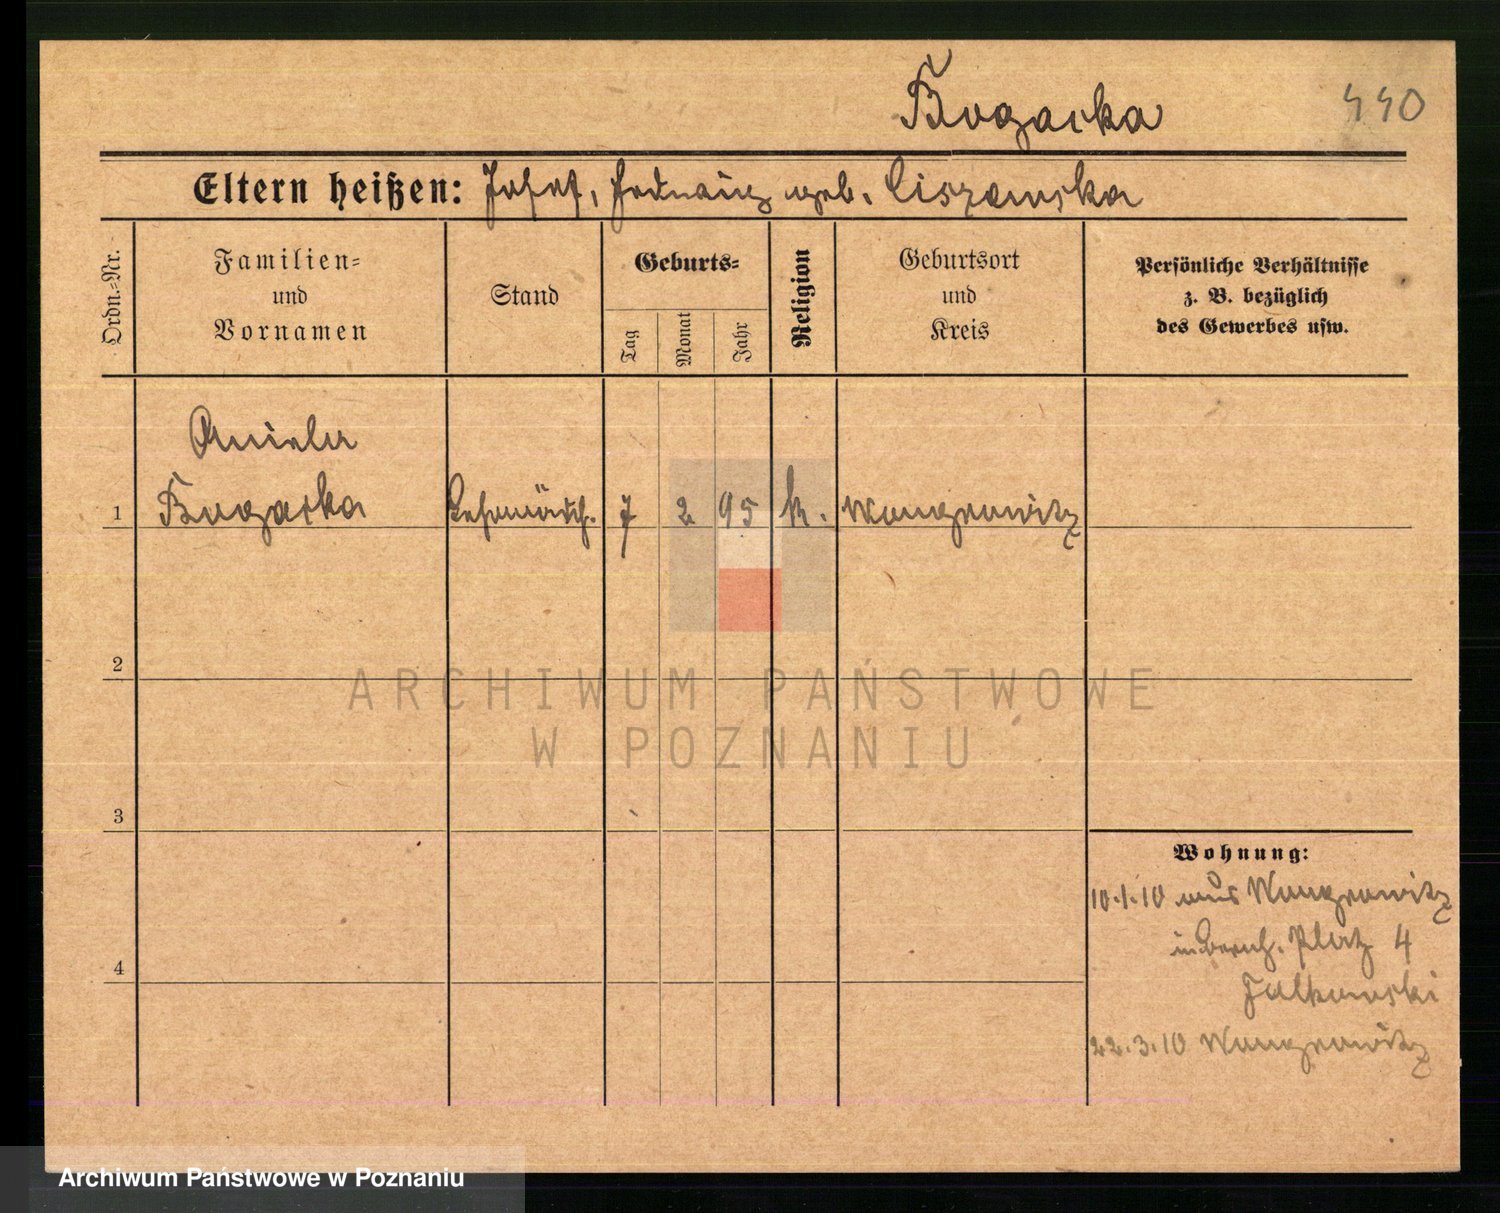 Bogacka
440
Eltern heißen: Josef, geb. Ciszewska
Ordn.-Nr.
Familien-
und
Vornamen
Stand
Geburts-
Tag
Monat
Jahr
Religion
Geburtsort
und
Kreis
Persönliche Verhältnisse
z. B. bezüglich
des Gewerbes usw.
Aniela
1 Bogacka Lehrmädch. 7 2 95 k. Wongrowitz
2
ARCHIWUM PAŃSTWOWE
W POZNANIU
3
Wohnung:
10.1.10 aus Wongrowitz
Platz 4
Falkowski
4
22.3.10 Wongrowitz
Archiwum Państwowe w Poznaniu